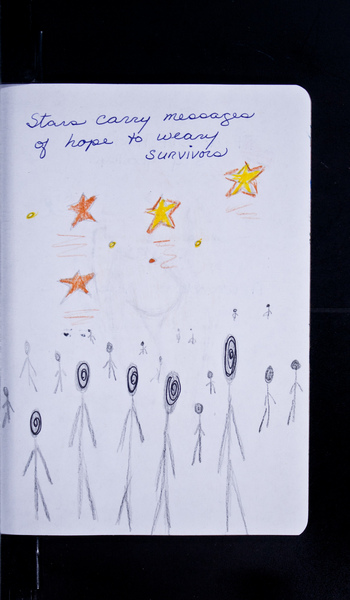 Stars carry messages
of hope to weary
survivors